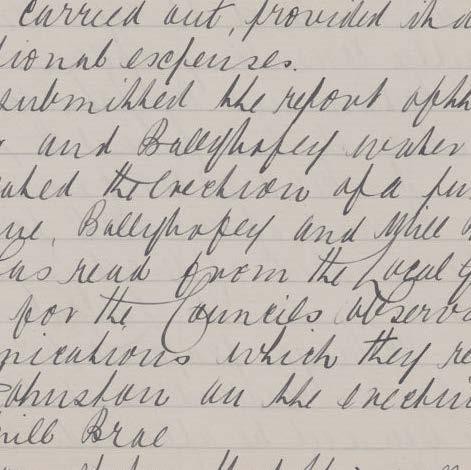 carried out, provided it d
tional expenses.
submitted the report of th
and Ballybofey water
ated the erection of a pu
ue, Ballybofey and Mill B
as read from the Local G
for the Councils observa
nications which they re
Johnston on the erection
ill Brae